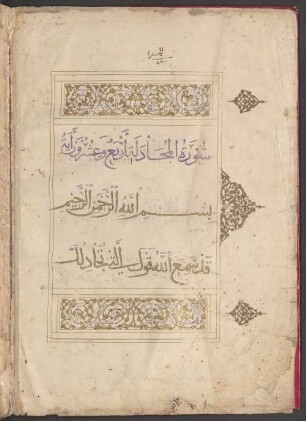 سورة المجادلة أربع وعشرون آية
بسم الله الرحمن الرحيم
قد سمع الله قول التي تجادلك